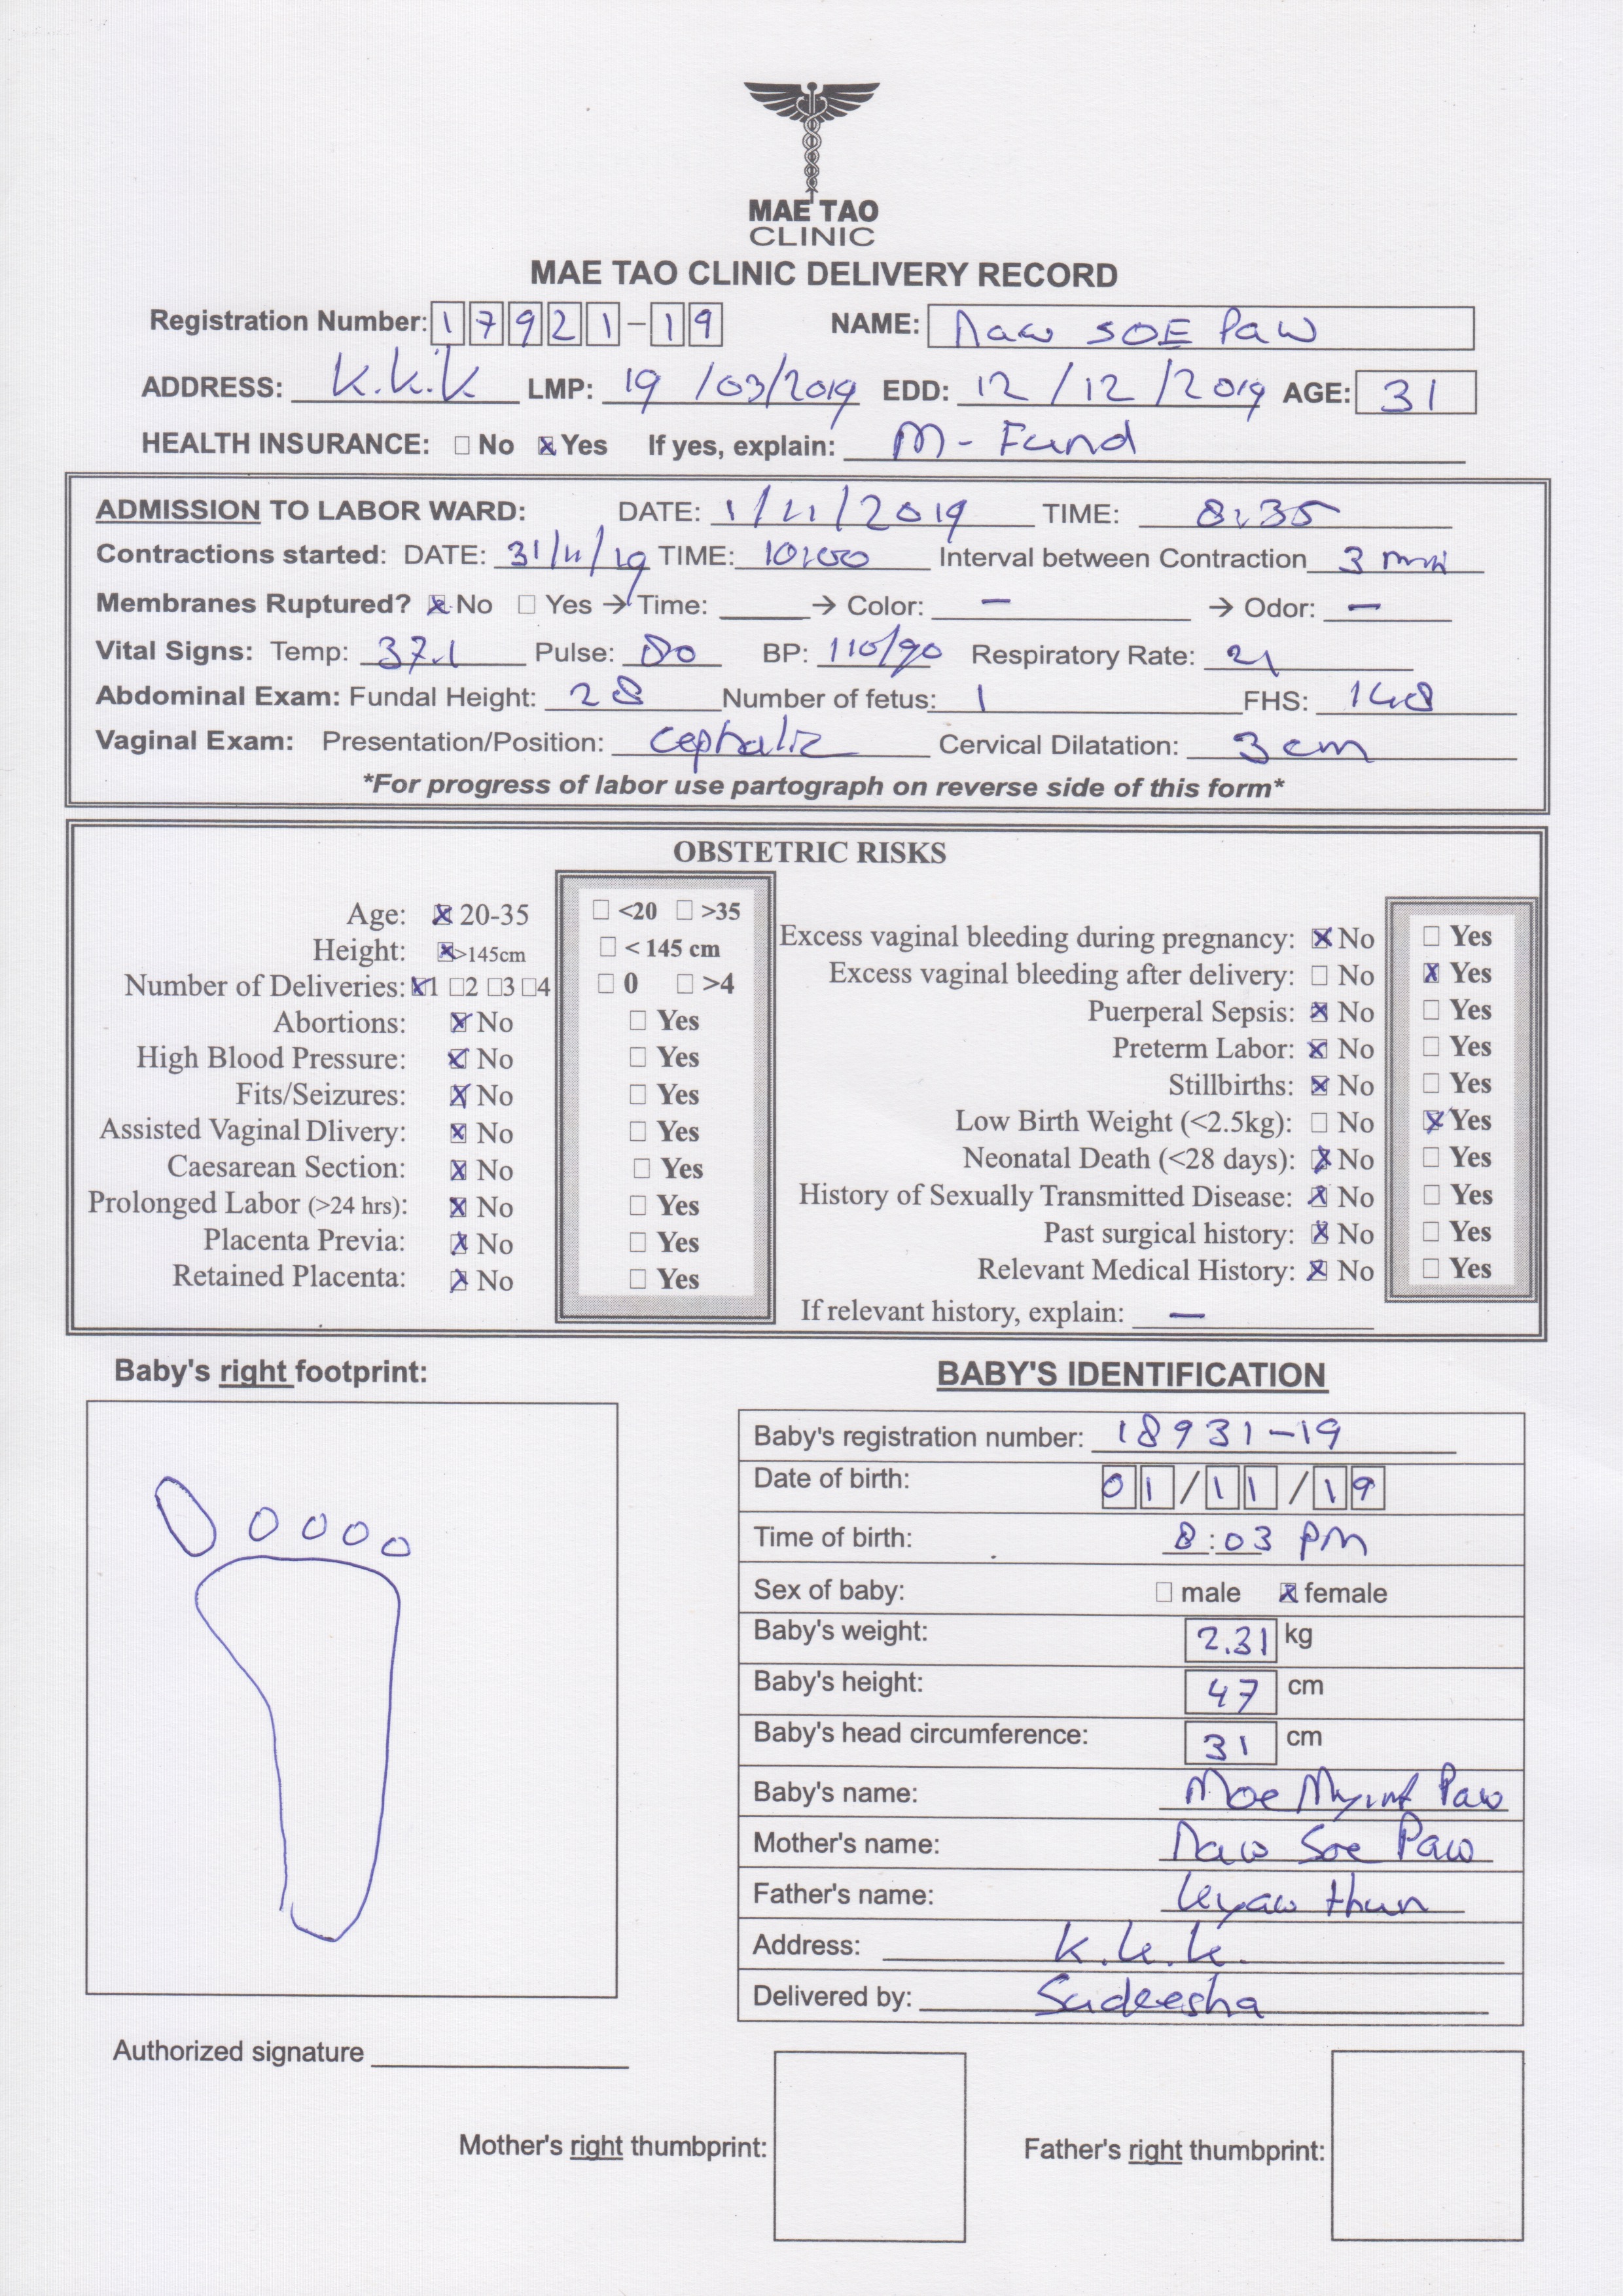 MAE TAO
CLINIC
MAE TAO CLINIC DELIVERY RECORD
Registration Number: 17921-19 NAME: Naw SOE Paw
ADDRESS: K.K.K LMP: 19/03/2019 EDD: 12/12/2019 AGE: 31
HEALTH INSURANCE: ☐ No ☒ Yes If yes, explain: M-Fund
ADMISSION TO LABOR WARD: DATE: 1/11/2019 TIME: 8:35
Contractions started: DATE: 31/11/19 TIME: 10:00 Interval between Contraction 3 min
Membranes Ruptured? ☒ No ☐ Yes → Time: → Color: – → Odor: –
Vital Signs: Temp: 37.1 Pulse: 80 BP: 110/90 Respiratory Rate: 21
Abdominal Exam: Fundal Height: 28 Number of fetus: 1 FHS: 148
Vaginal Exam: Presentation/Position: cephalic Cervical Dilatation: 3cm
*For progress of labor use partograph on reverse side of this form*
OBSTETRIC RISKS
Age: ☒ 20-35 ☐ <20 ☐ >35
Height: ☒ >145cm ☐ < 145 cm
Number of Deliveries: ☒1 ☐2 ☐3 ☐4 ☐ 0 ☐ >4
Abortions: ☒ No ☐ Yes
High Blood Pressure: ☒ No ☐ Yes
Fits/Seizures: ☒ No ☐ Yes
Assisted Vaginal Dlivery: ☒ No ☐ Yes
Caesarean Section: ☒ No ☐ Yes
Prolonged Labor (>24 hrs): ☒ No ☐ Yes
Placenta Previa: ☒ No ☐ Yes
Retained Placenta: ☒ No ☐ Yes
Excess vaginal bleeding during pregnancy: ☒ No ☐ Yes
Excess vaginal bleeding after delivery: ☐ No ☒ Yes
Puerperal Sepsis: ☒ No ☐ Yes
Preterm Labor: ☒ No ☐ Yes
Stillbirths: ☒ No ☐ Yes
Low Birth Weight (<2.5kg): ☐ No ☒ Yes
Neonatal Death (<28 days): ☒ No ☐ Yes
History of Sexually Transmitted Disease: ☒ No ☐ Yes
Past surgical history: ☒ No ☐ Yes
Relevant Medical History: ☒ No ☐ Yes
If relevant history, explain: –
Baby's right footprint:
BABY'S IDENTIFICATION
Baby's registration number: 18931-19
Date of birth: 01/11/19
Time of birth: 8:03 PM
Sex of baby: ☐ male ☒ female
Baby's weight: 2.31 kg
Baby's height: 47 cm
Baby's head circumference: 31 cm
Baby's name: Moe Myint Paw
Mother's name: Naw Soe Paw
Father's name: Kyaw thun
Address: K.K.K.
Delivered by: Sudeesha
Authorized signature
Mother's right thumbprint:
Father's right thumbprint: